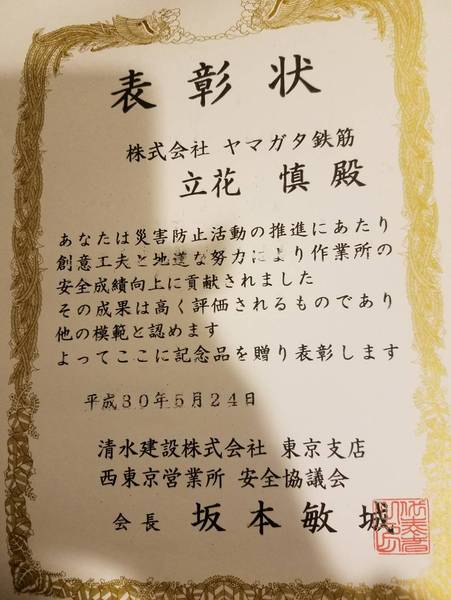 表彰状
株式会社 ヤマガタ鉄筋
立花 慎 殿
あなたは災害防止活動の推進にあたり
創意工夫と地道な努力により作業所の
安全成績向上に貢献されました
その成果は高く評価されるものであり
他の模範と認めます
よってここに記念品を贈り表彰します
平成30年5月24日
清水建設株式会社 東京支店
西東京営業所 安全協議会
会長 坂本敏城